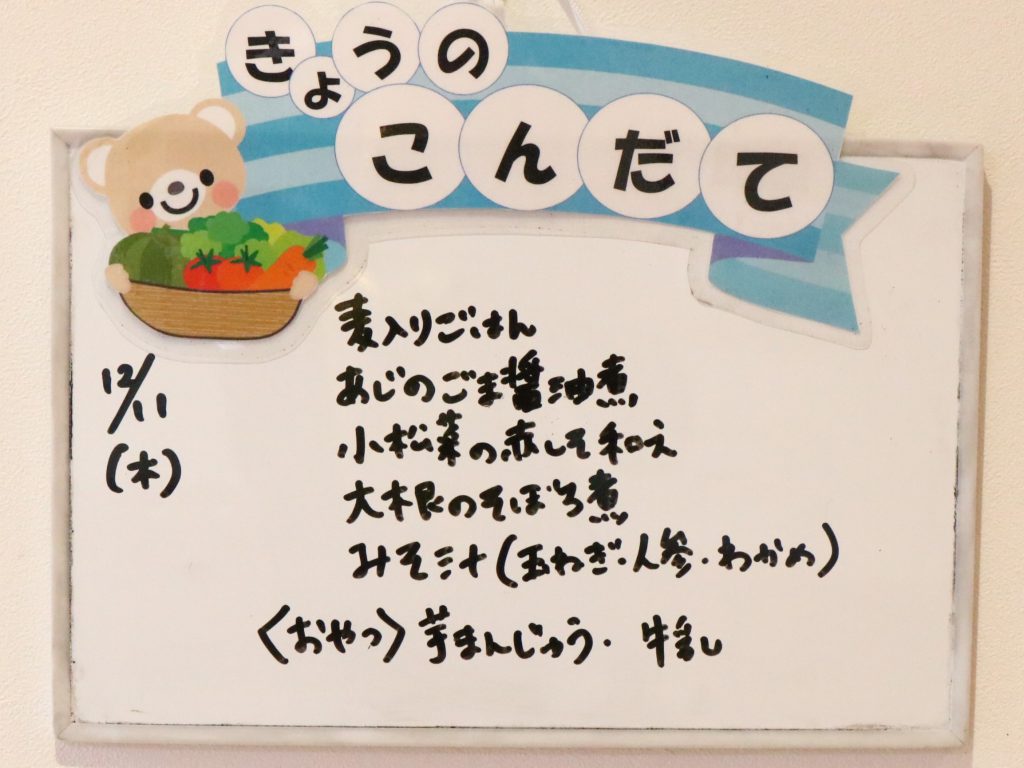 きょうの
こんだて
12/11
(木)
麦入りごはん
あじのごま醤油煮
小松菜の赤しそ和え
大根のそぼろ煮
みそ汁(玉ねぎ・人参・わかめ)
〈おやつ〉芋まんじゅう・牛乳